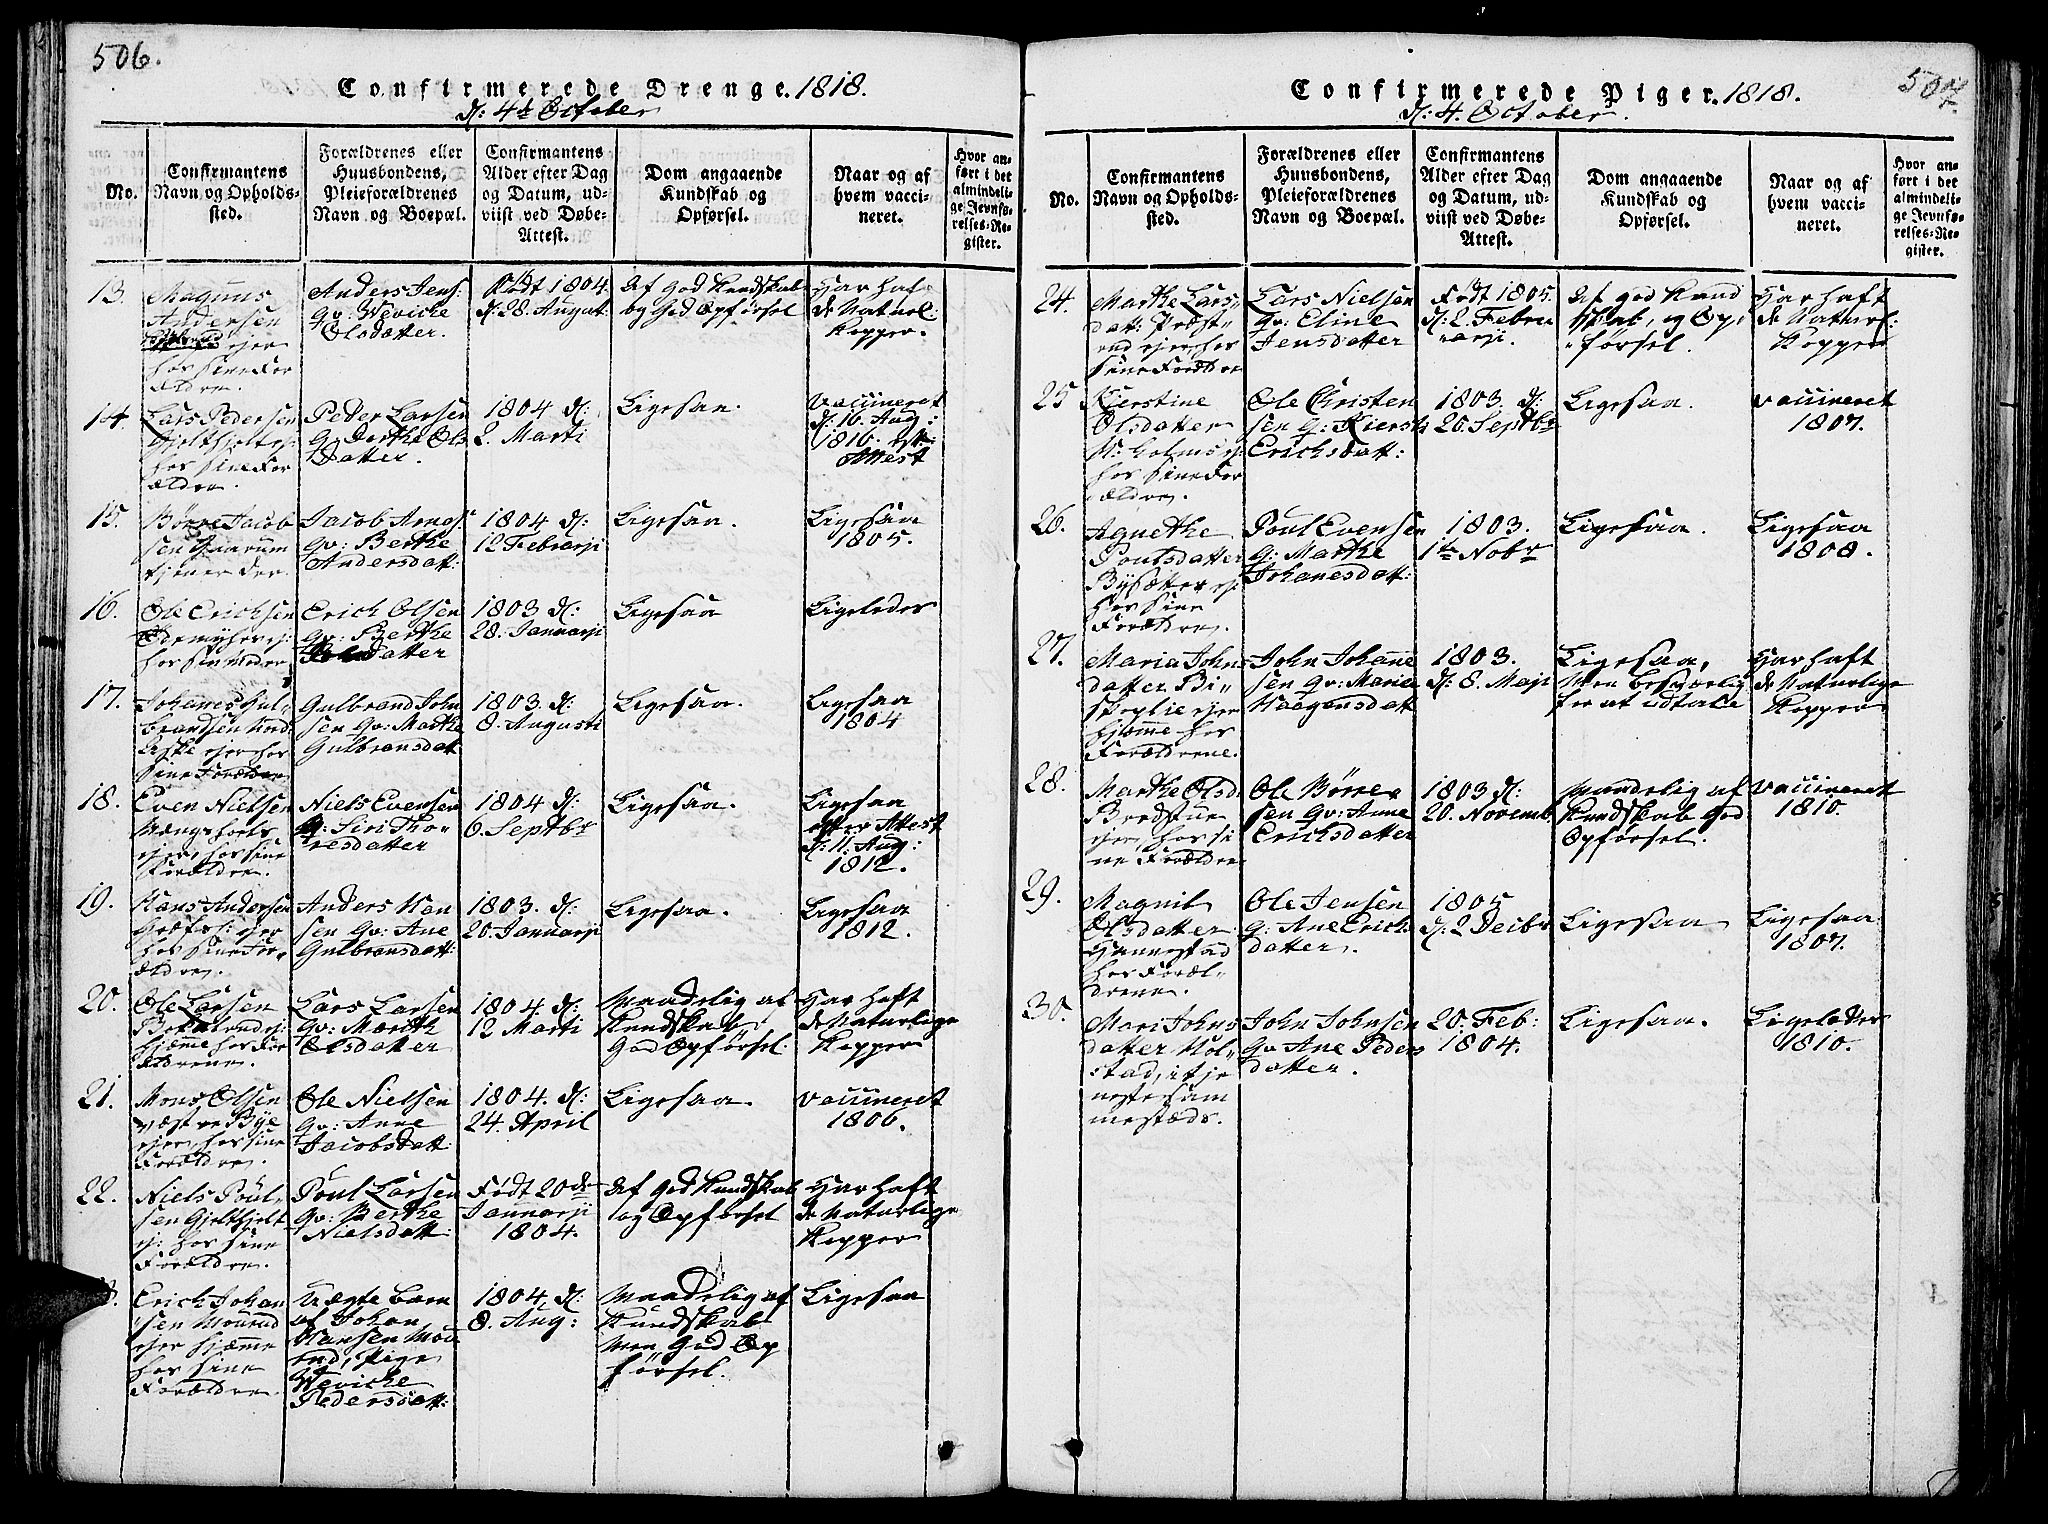 506.
Confirmerede Drenge. 1818.
d: 4d October
No.
Confirmantens
Navn og Opholds-
sted.
Forældrenes eller
Huusbondens,
Pleieforældrenes
Navn og Boepæl.
Confirmantens
Alder efter Dag
og Datum, ud-
viist ved Døbe-
Attest.
Dom angaaende
Kundskab og
Opførsel.
Naar og af
hvem vacci-
neret.
Hvor an-
ført i det
almindeli-
ge Jevnfø-
relses-Re-
gister.
13.
Magnus
Andersen
ejer
hos sine For
ældre.
Anders Jens:
Qv: Wevicke
Olsdatter.
Født 1804.
d: 28. August
Af god Kundskab
og God Opførsel
Har haft
de Naturl:
Kopper.
14.
Lars Pedersen
hos sine For
ældre.
Peder Larsen
Q. Berthe Ols
Datter.
1804 d:
2. Marti
Ligesaa.
Vaccineret
d: 16. Aug:
1816. est:
Attest
15.
Børre Jacob
sen Haarum
tjener der.
Jacob Arnes:
Qv: Berthe
Andersdatt:
1804 d:
12 Februarji
Ligesaa.
Ligesaa
1805.
16.
Ole Erichsen
hos sin Moder
Erich Olsen
Qv: Berthe
datter
1803 d:
28. Januarji
Ligesaa
Ligeledes
17.
Johannes Gul-
brandsen
ejer hos
sine Forældre
Gulbrand John
sen Qv: Marthe
Gulbransdatt
1803 d:
8. Augusti
Ligesaa.
Ligesaa
1804
18.
Even Nielsen
Mængshoel
ejer, hos sine
Forældre.
Niels Evensen
Q: Siri Tho-
resdatter
1804 d:
6. Septbr
Ligesaa.
Ligesaa
efter Attest
d: 11. Aug:
1812.
19.
Hans Andersen
ejer
hos sine For-
ældre.
Anders Han
sen Qv: Ane
Gulbransdatt:
1803. d:
20. Januarji
Ligesaa.
Ligesaa
1812.
20.
Ole Larsen
hjæmme hos For
ældrene.
Lars Larsen
Qv: Marith
Olsdatter
1804. d:
12 Marti
Maadelig af
Kundskab
God Opførsel.
Har haft
de Naturlige
Kopper
21.
Mons Olsen
Væstre Bye
ejer, hos sine
Forældre.
Ole Nielsen
Qv: Anne
Jacobsdatt:
1804. d:
24. April
Ligesaa.
Vaccineret
1806.
22.
Niels Poul-
sen
ej: hos sine
Forældre.
Poul Larsen
Qv: Berthe
Nielsdatt:
Født 20de
Januarji
1804.
Af god Kundskab
og Opførsel
Har haft
de Naturlige
Kopper
Erich Johan
sen Mourud
ejer hjæmme
hos sine
Forældre.
Uægte barn
af Johan
Hansen Mou
rud, Pige
Wevicke
Pedersdatt:
1804 d:
8. Aug:
Maadelig af
Kundskab
Men God Op
førsel.
Ligesaa
507
Confirmerede Piger. 1818.
d: 4. October.
No.
Confirmantens
Navn og Opholds-
sted.
Forældrenes eller
Huusbondens,
Pleieforældrenes
Navn og Boepæl.
Confirmantens
Alder efter Dag
og Datum, ud-
viist ved Døbe-
Attest.
Dom angaaende
Kundskab og
Opførsel.
Naar og af
hvem vacci-
neret.
Hvor an-
ført i det
almindeli-
ge Jevnfø-
relses-Re-
gister.
24.
Marthe Lars-
datt: Præst-
rud ejer hos
sine Forældre
Lars Nielsen
Qv: Eline
Jensdatter
Født 1805.
d: 2. Febru
arji.
Af god Kund
skab, og Op-
førsel.
Har haft
de Naturl:
Kopper
25
Kierstine
Olsdatter
hos sine For
ældre.
Ole Christen
sen Q: Kiersti
Erichsdatt:
1803. d:
20. Septbr
Ligesaa.
Vaccineret
1807.
26.
Agnethe
Poulsdatter
Bysæter ej:
hos sine
Forældre.
Poul Evensen
Q: Marthe
Johanesdatt:
1803.
1te Nobr
Ligesaa.
Ligesaa
1808.
27.
Maria Johns
datter Bi-
ejer
hjæmme hos
Forældrene.
John Johane
sen Qv: Marie
Haagensdatt
1803.
d: 8. Maji
Ligesaa,
Men besværlig
for at udtale
Har haft
de Naturlige
Kopper
28.
Marthe Olsd.
Bredstue
ejer, hos si
ne Forældre
Ole Børre
sen Qv: Anne
Erichsdatter
1803 d:
20. Novemb.
Maadelig af
Kundskab God
Opførsel.
Vaccineret
1810.
29.
Magnil
Olsdatter
Hannestad
hos Foræl-
drene.
Ole Jensen
Q: Ane Erich
datter.
1805
d: 2 Decbr
Ligesaa
Ligesaa:
1807.
30.
Mari Johns
datter Hol-
stad, i tje
neste sam
mesteds.
John Johnsen
Qv Ane Peders
datter.
20. Feb:
1804.
Ligesaa.
Ligeledes
1810.